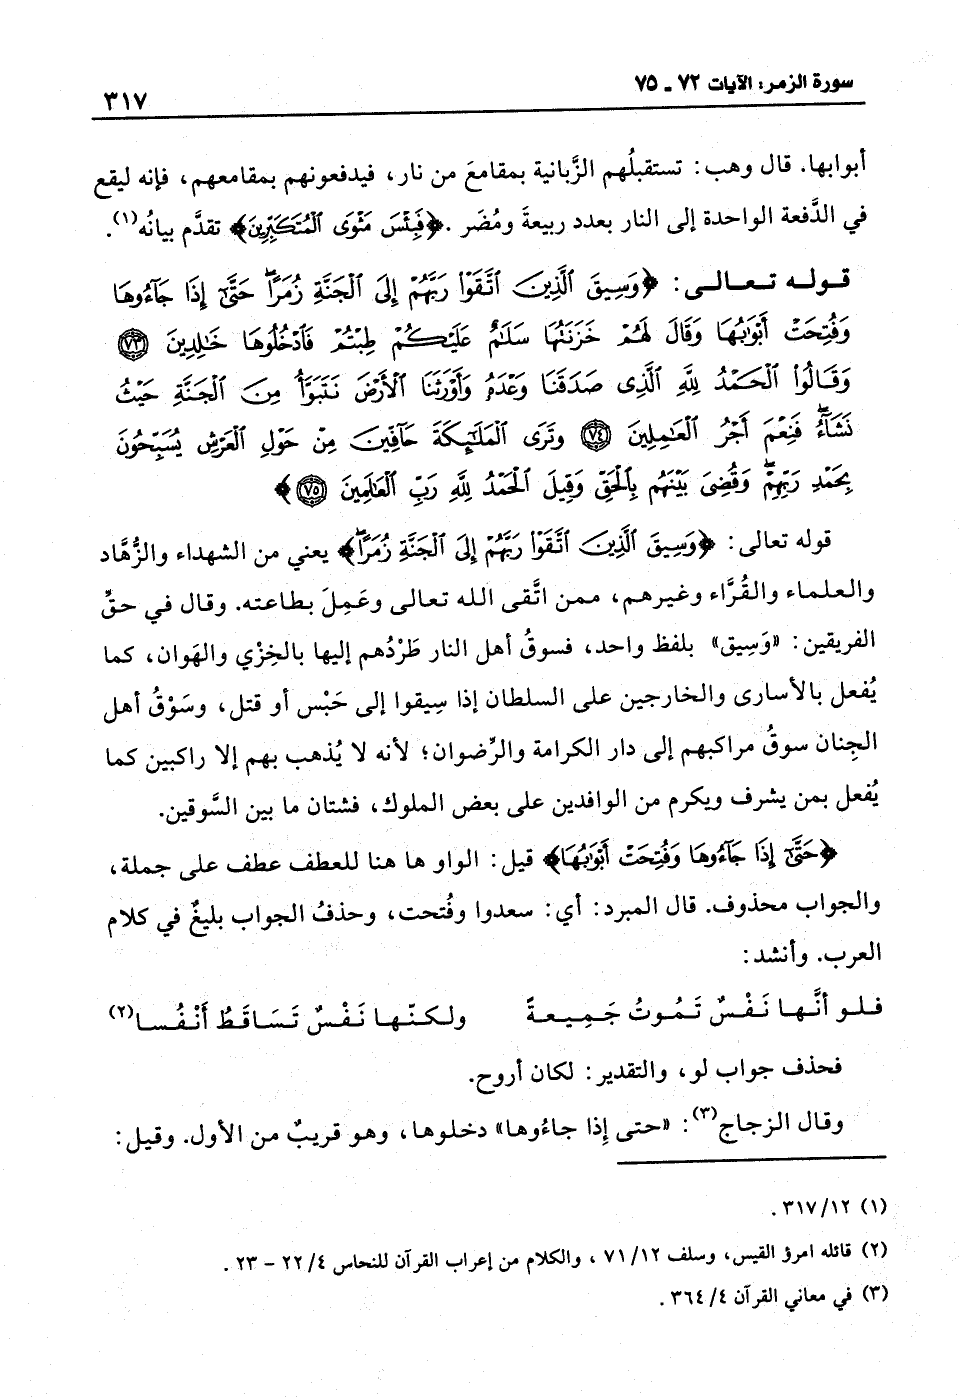 سورة الزمر: الآيات ٧٢ ـ ٧٥
٣١٧
أبوابها. قال وهب: تستقبلُهم الزَّبانية بمقامعَ من نار، فيدفعونهم بمقامعهم، فإنه ليقع
في الدَّفعة الواحدة إلى النار بعدد ربيعةَ ومُضَر. ﴿فَبِئْسَ مَثْوَى ٱلْمُتَكَبِّرِينَ﴾ تقدَّم بيانُه(١).
قوله تعالى: ﴿وَسِيقَ ٱلَّذِينَ ٱتَّقَوْا۟ رَبَّهُمْ إِلَى ٱلْجَنَّةِ زُمَرًا ۖ حَتَّىٰٓ إِذَا جَآءُوهَا
وَفُتِحَتْ أَبْوَٰبُهَا وَقَالَ لَهُمْ خَزَنَتُهَا سَلَٰمٌ عَلَيْكُمْ طِبْتُمْ فَٱدْخُلُوهَا خَٰلِدِينَ ٧٣
وَقَالُوا۟ ٱلْحَمْدُ لِلَّهِ ٱلَّذِى صَدَقَنَا وَعْدَهُۥ وَأَوْرَثَنَا ٱلْأَرْضَ نَتَبَوَّأُ مِنَ ٱلْجَنَّةِ حَيْثُ
نَشَآءُ ۖ فَنِعْمَ أَجْرُ ٱلْعَٰمِلِينَ ٧٤ وَتَرَى ٱلْمَلَٰٓئِكَةَ حَآفِّينَ مِنْ حَوْلِ ٱلْعَرْشِ يُسَبِّحُونَ
بِحَمْدِ رَبِّهِمْ ۖ وَقُضِىَ بَيْنَهُم بِٱلْحَقِّ وَقِيلَ ٱلْحَمْدُ لِلَّهِ رَبِّ ٱلْعَٰلَمِينَ ٧٥﴾
قوله تعالى: ﴿وَسِيقَ ٱلَّذِينَ ٱتَّقَوْا۟ رَبَّهُمْ إِلَى ٱلْجَنَّةِ زُمَرًا ۖ﴾ يعني من الشهداء والزُّهَّاد
والعلماء والقُرَّاء وغيرهم، ممن اتَّقى الله تعالى وعَمِلَ بطاعته. وقال في حقِّ
الفريقين: «وَسِيق» بلفظ واحد، فسوقُ أهل النار طَرْدُهم إليها بالخِزْي والهَوان، كما
يُفعل بالأسارى والخارجين على السلطان إذا سِيقوا إلى حَبْس أو قتل، وسَوْقُ أهل
الجِنان سوقُ مراكبهم إلى دار الكرامة والرِّضوان؛ لأنه لا يُذهب بهم إلا راكبين كما
يُفعل بمن يشرف ويكرم من الوافدين على بعض الملوك، فشتان ما بين السَّوقين.
﴿حَتَّىٰٓ إِذَا جَآءُوهَا وَفُتِحَتْ أَبْوَٰبُهَا﴾ قيل: الواو ها هنا للعطف عطف على جملة،
والجواب محذوف. قال المبرد: أي: سعدوا وفُتحت، وحذفُ الجواب بليغٌ في كلام
العرب. وأنشد:
فلو أنَّها نَفْسٌ تَمُوتُ جَمِيعةً ولكنّها نَفْسٌ تَسَاقَطُ أَنْفُسا(٢)
فحذف جواب لو، والتقدير: لكان أروح.
وقال الزجاج(٣): «حتى إِذا جاءُوها» دخلوها، وهو قريبٌ من الأول. وقيل:
(١) ٣١٧/١٢.
(٢) قائله امرؤ القيس، وسلف ٧١/١٢، والكلام من إعراب القرآن للنحاس ٢٢/٤ – ٢٣.
(٣) في معاني القرآن ٣٦٤/٤.